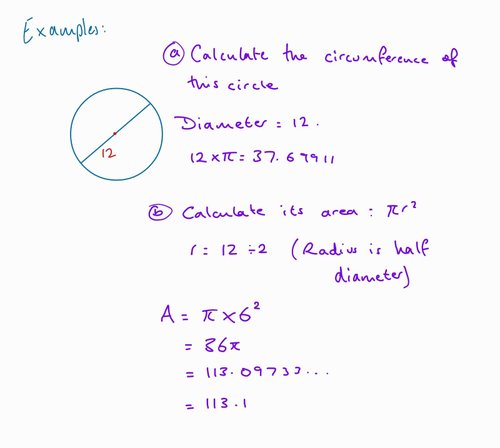 Examples:
(a) Calculate the circumference of
this circle
12
Diameter = 12.
12 × π = 37.69911
(b) Calculate its area : πr²
r = 12 ÷ 2 (Radius is half
diameter)
A = π × 6²
= 36π
= 113.09733...
= 113.1